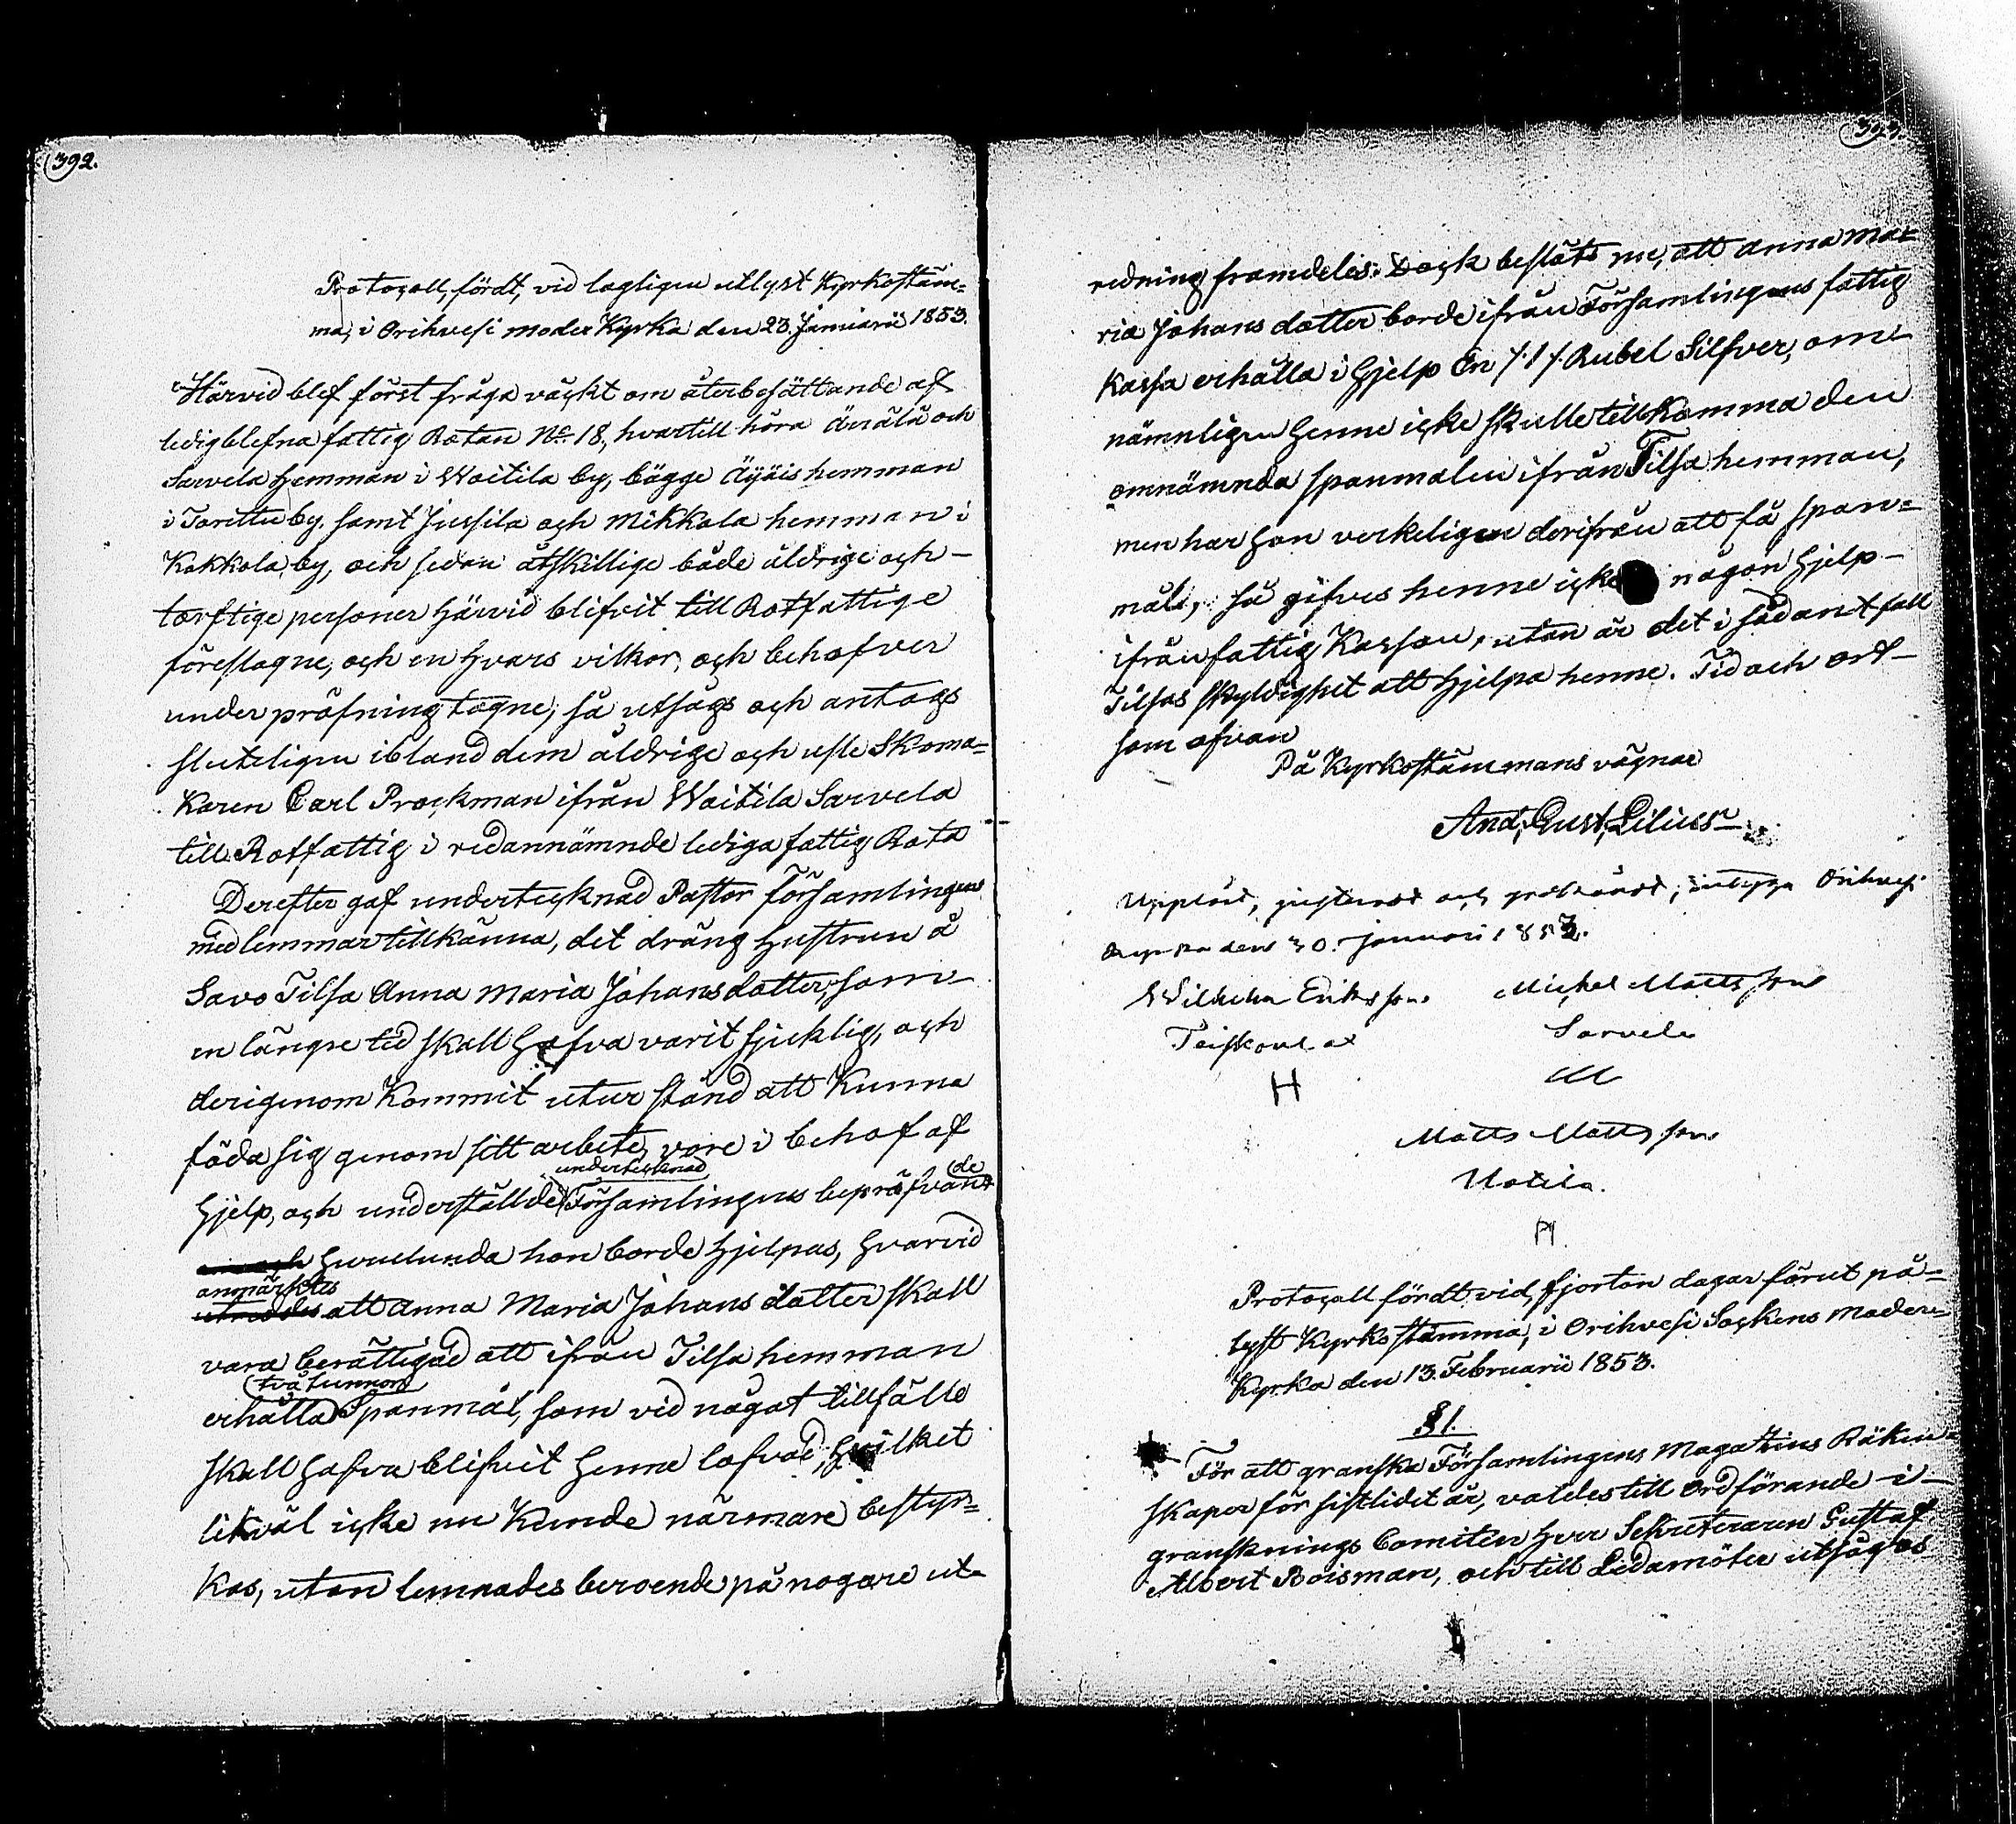 392.
Protocoll, fördt, vid lagligen utlyst Kyrkostäm=
ma, i Orihvesi moder Kyrka den 23. Januarii 1853.
Härvid blef först fråga väckt om återbesättande af
ledigblefna fattig Rotan No 18, hvartill höra Änälä och
Sarvela hemman i Woitila by, bägge Äijäis hemman
i Torittu by, samt Jussila och Mikkola hemman i
Kokkola by, och sedan åtskillige både åldrige och
torftige personer härvid blifvit till Rotfattige
föreslagne, och en hvars vilkor, och behofver
under pröfning tagne, så utsågs och antogs
sluteligen ibland dem åldrige och usle Skoma=
karen Carl Prockman ifrån Woitila Sarvela
till Rotfattig i redannämnde lediga fattig Rota
Derefter gaf undertecknad Pastor Församlingens
medlemmar tillkänna, det dräng hustrun å
Savo Tilsa Anna Maria Johansdotter, som
en längre tid skall hafva varit sjuklig, och
derigenom Kommit utur stånd att Kunna
föda sig genom sitt arbete, vore i behof af
undertecknad
hjelp, och underställde Församlingens bepröfvande
huruledes hon borde hjelpas, hvarvid
anmärktes
utreddes att Anna Maria Johans dotter skall
vara berättigad att ifrån Tilsa hemman
två tunnor
erhålla Spanmål, som vid något tillfälle
skall hafva blifvit henne lofvad, hvilket
likväl icke nu Kunde närmare bestyr=
kas, utan lemnades beroende på nogare ut=
393.
redning framdeles. Dock beslöts nu, att Anna Ma=
ria Johans dotter borde ifrån Församlingens fattig
Kassa erhålla i hjelp En /:1/: Rubel Silfver, om
nämnligen henne icke skulle tillkomma den
omnämnda spanmålen ifrån Tilsa hemman,
men har hon verkeligen derifrån att få span=
mål, så gifves henne icke någon hjelp
ifrån fattig Kassan, utan är det i sådant fall
Tilsas skyldighet att hjelpa henne. Tid och ort
som ofvan
På Kyrkostämmans vägnar
And, Gust, Lilius
Uppläst, justerat och godkändt, intygga Orihvesi
Kyrka den 30. Januari 1853.
Wilhelm Eriksson Michel Mattsson
Sarvela
H M
Matts Mattsson
Uotila.
Protocoll fördt vid, fjorton dagar förut på=
lyst Kyrkostämma, i Orihvesi Sockens Moder=
Kyrka den 13. Februarii 1853.
§ 1.
För att granska Församlingens Magazins Räken=
skaper för sistlidit år, valdes till ordförande i
gransknings Comiteen Herr Sekreteraren Gustaf
Albert Roisman, och till Ledamöter utsågos